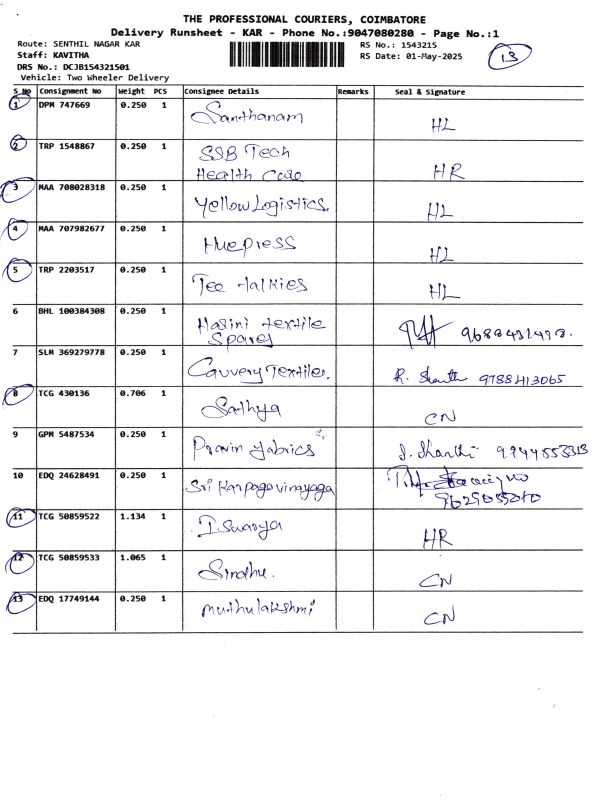 THE PROFESSIONAL COURIERS, COIMBATORE
Delivery Runsheet - KAR - Phone No.:9047080280 - Page No.:1
Route: SENTHIL NAGAR KAR
RS No.: 1543215
Staff: KAVITHA
RS Date: 01-May-2025
DRS No.: DCJB154321501
13
Vehicle: Two Wheeler Delivery
S No Consignment No Weight PCS Consignee Details Remarks Seal & Signature
1 DPM 747669 0.250 1 Santhanam HL
2 TRP 1548867 0.250 1 SSB Tech
Health Care HR
3 MAA 708028318 0.250 1 Yellow Logistics. HL
4 MAA 707982677 0.250 1 Huepress HL
5 TRP 2203517 0.250 1 Tee talkies HL
6 BHL 100384308 0.250 1 Harini textile
Spares
7 SLM 369279778 0.250 1 Cauvery Textiles. 9788413065
8 TCG 430136 0.706 1 Sathya CN
9 GPM 5487534 0.250 1 Pravin fabrics J. Shanthi
10 EDQ 24628491 0.250 1 Sri Karpagavinayaga
11 TCG 50859522 1.134 1 I. Swarya HR
12 TCG 50859533 1.065 1 Sindhu. CN
13 EDQ 17749144 0.250 1 Muthulakshmi CN